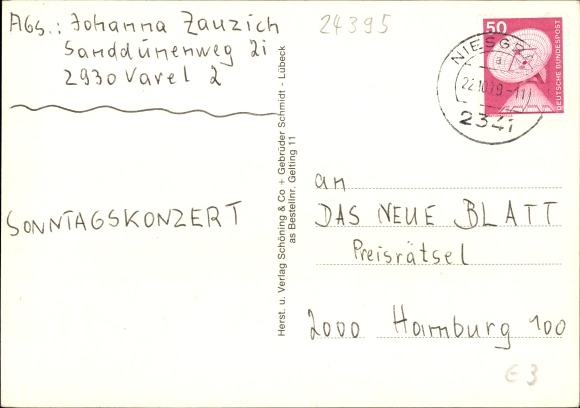 Abs.: Johanna Zauzich
Sanddünenweg 2i
2930 Varel 2
SONNTAGSKONZERT
24395
Herst. u. Verlag Schöning & Co + Gebrüder Schmidt - Lübeck
as Bestellnr. Gelting 11
50
DEUTSCHE BUNDESPOST
22.10.79-11
2341
an
DAS NEUE BLATT
Preisrätsel
2000 Hamburg 100
€ 3